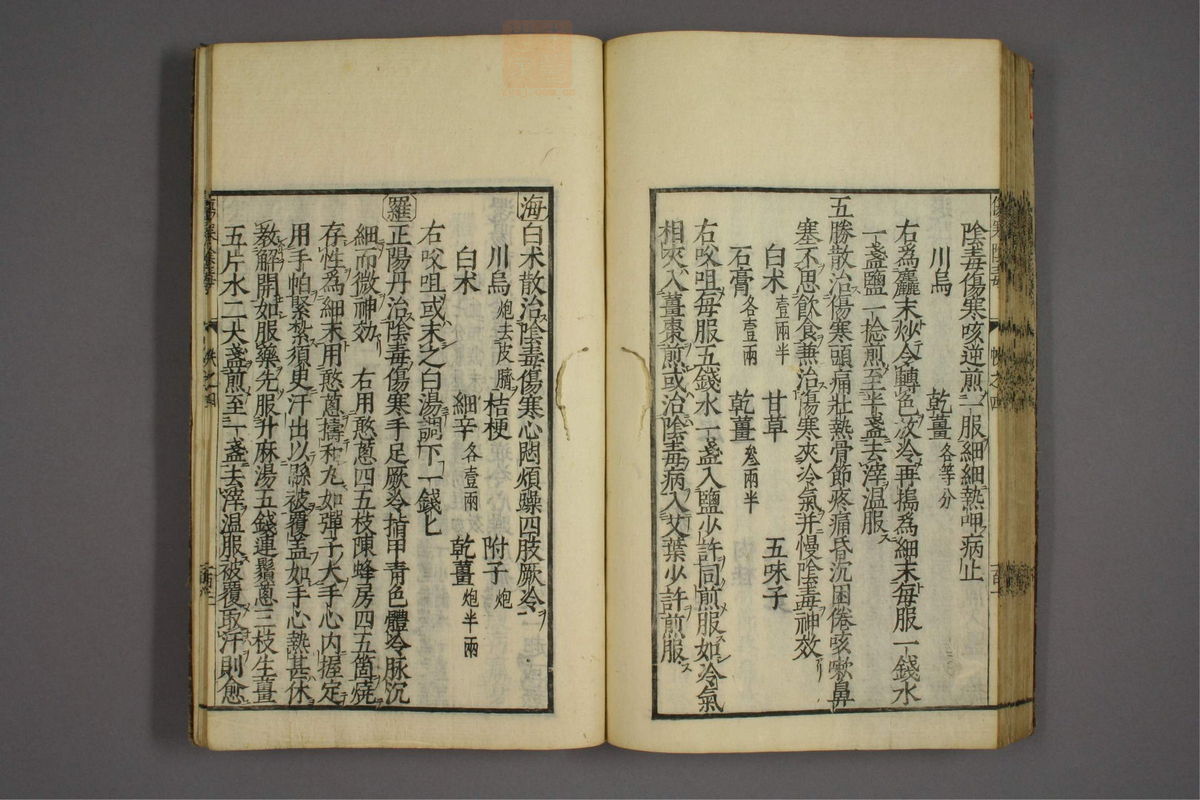 陰毒傷寒咳逆煎一服細細熱呷病止
川烏 乾薑各等分
右為麤末炒令轉色放冷再搗為細末每服一錢水
一盞鹽一捻煎至半盞去滓溫服
五勝散治傷寒頭痛壯熱骨節疼痛昏沉困倦咳嗽鼻
塞不思飲食兼治傷寒夾冷氣并慢陰毒神效
白朮壹兩半 甘草 五味子
石膏各壹兩 乾薑叄兩半
右㕮咀每服五錢水一盞入鹽少許同煎服如冷氣
相夾入薑棗煎或治陰毒病入艾葉少許煎服
海白朮散治陰毒傷寒心悶煩躁四肢厥冷
川烏炮去皮臍 桔梗 附子炮
白朮 細辛各壹兩 乾薑炮半兩
右㕮咀或末之白湯調下一錢匕
羅正陽丹治陰毒傷寒手足厥冷指甲青色體冷脉沉
細而微神効 右用憨蔥四五枝陳蜂房四五箇燒
存性為細末用憨蔥擣和丸如彈子大手心內握定
用手帕緊紮須臾汗出以緜被覆盖如手心熱甚休
敎解開如服藥先服升麻湯五錢連鬚蔥三枝生薑
五片水二大盞煎至一盞去滓溫服被覆取汗則愈